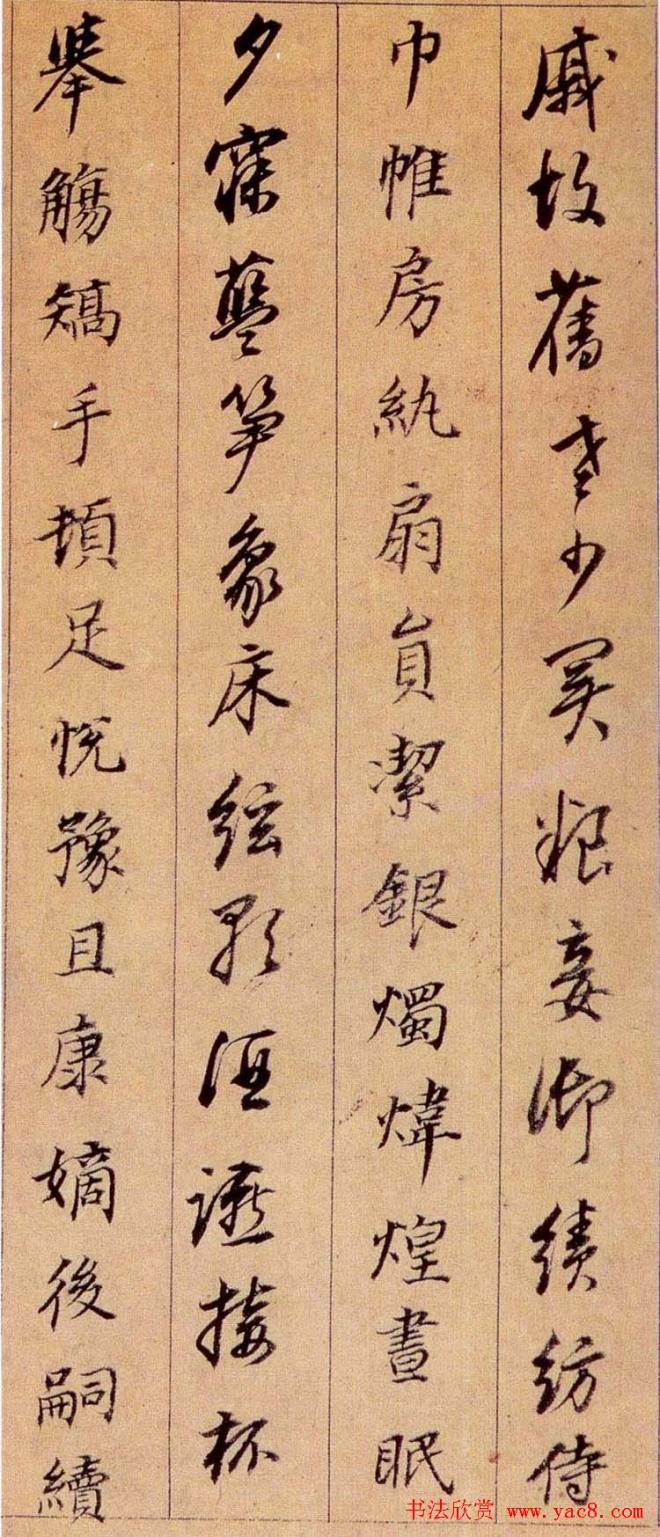 戚故舊老少異粮妾御績紡侍
巾帷房紈扇員潔銀燭煒煌晝眠
夕寐藍笋象床絃歌酒讌接杯
舉觴矯手頓足悅豫且康嫡後嗣續
书法欣赏 www.yac8.com